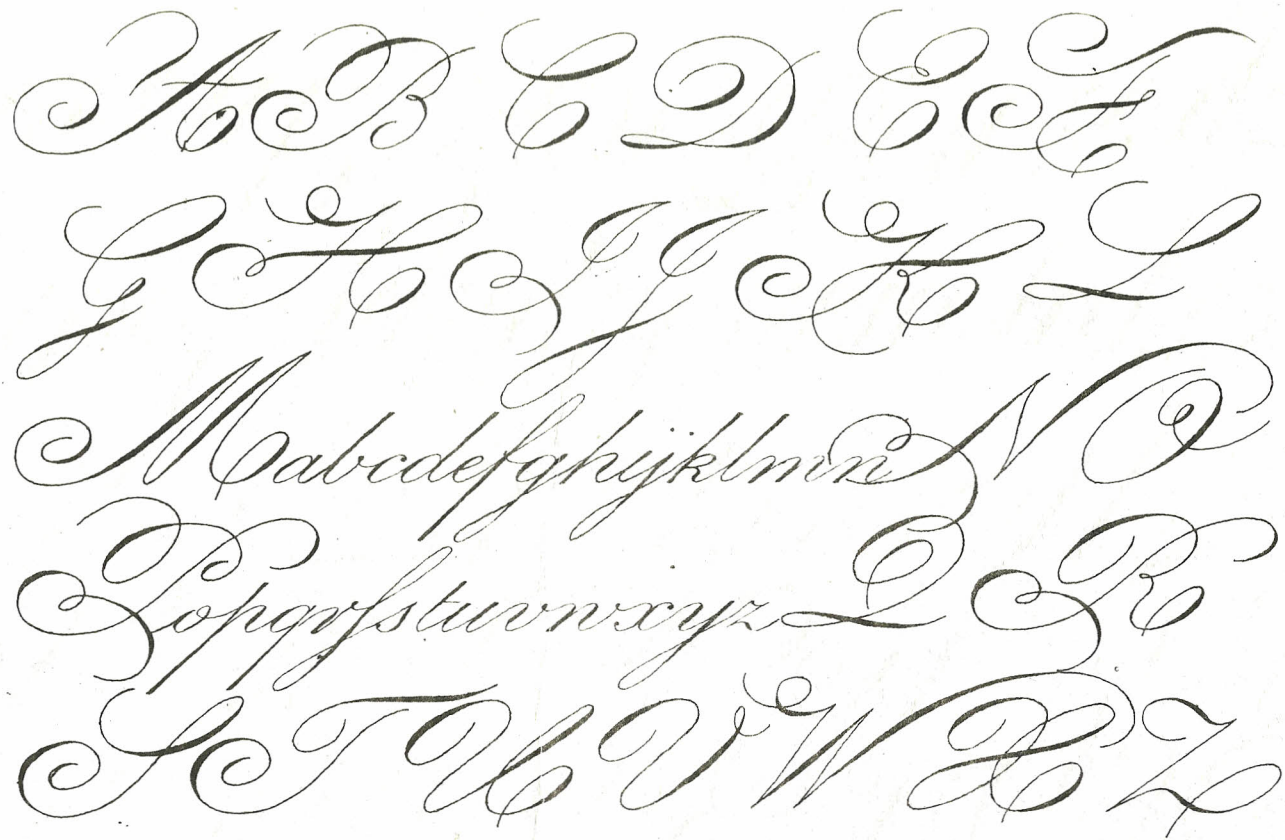 A B C D E F
G H I J K L
M abcdefghijklmn N O
P opqrſstuvwxyz Q R
S T U V W X Z